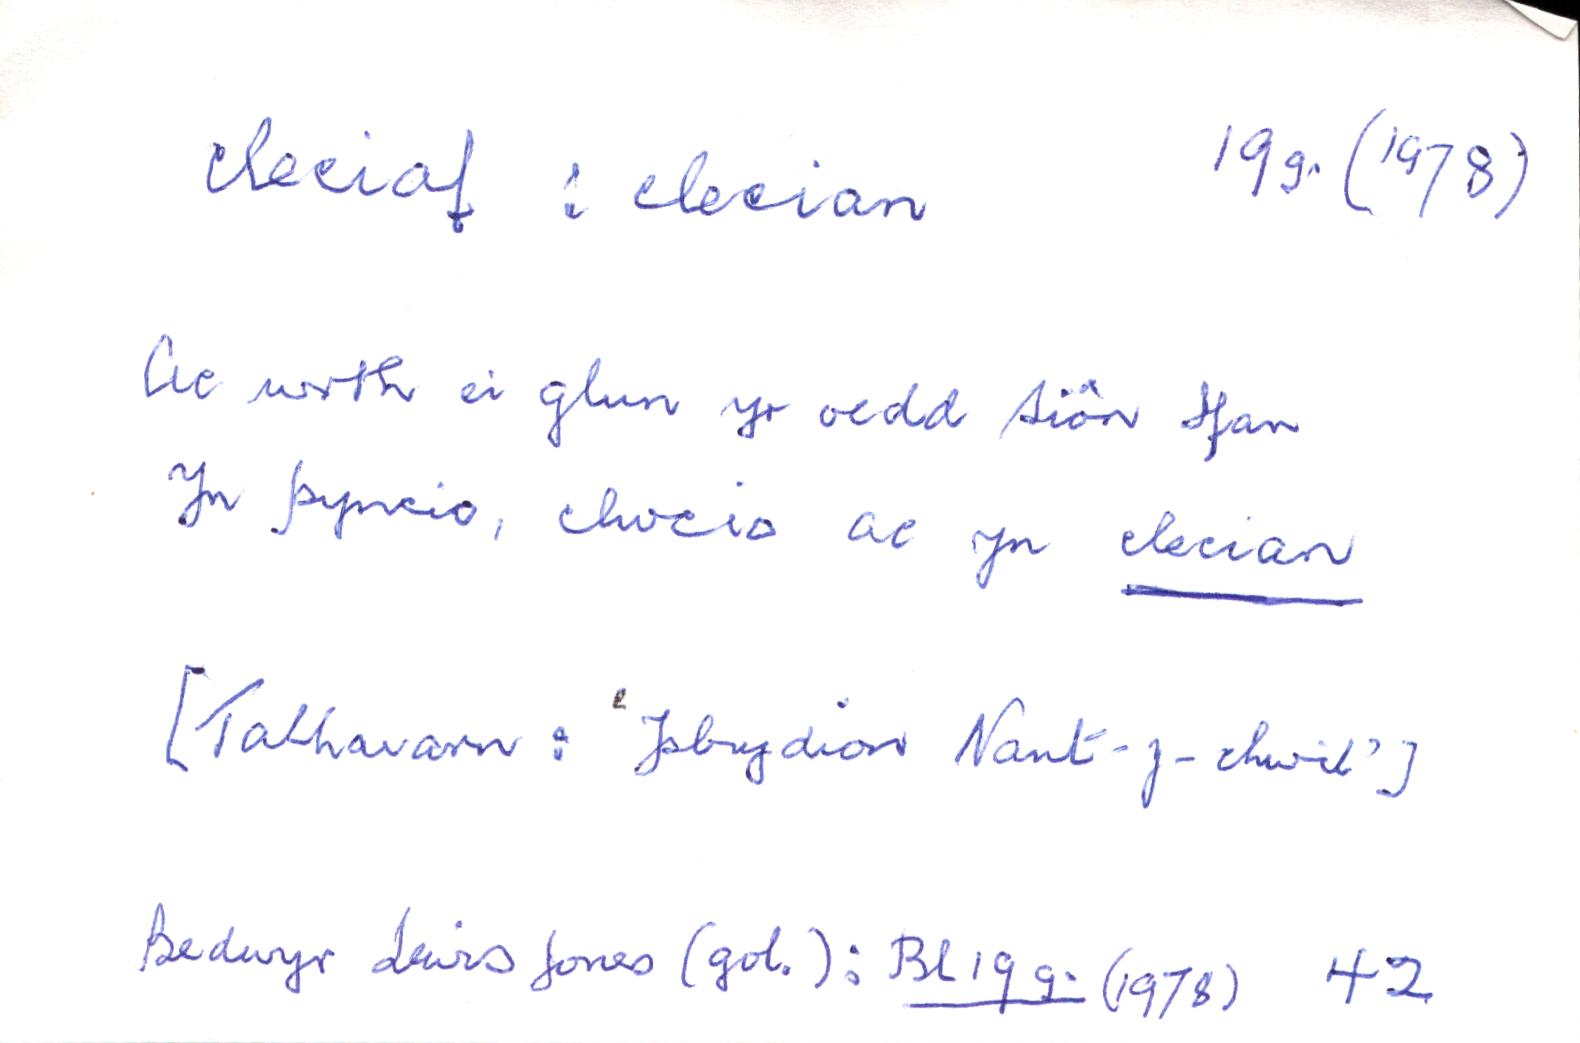 cleciaf : clecian 19g. (1978)
Ac wrth ei glun yr oedd Siôn Ifan
Yn pyncio, chocio ac yn clecian
[Talhaiarn : 'Ysbrydion Nant-y-chwil']
Bedwyr Lewis Jones (gol.): Bl 19 g. (1978) 42